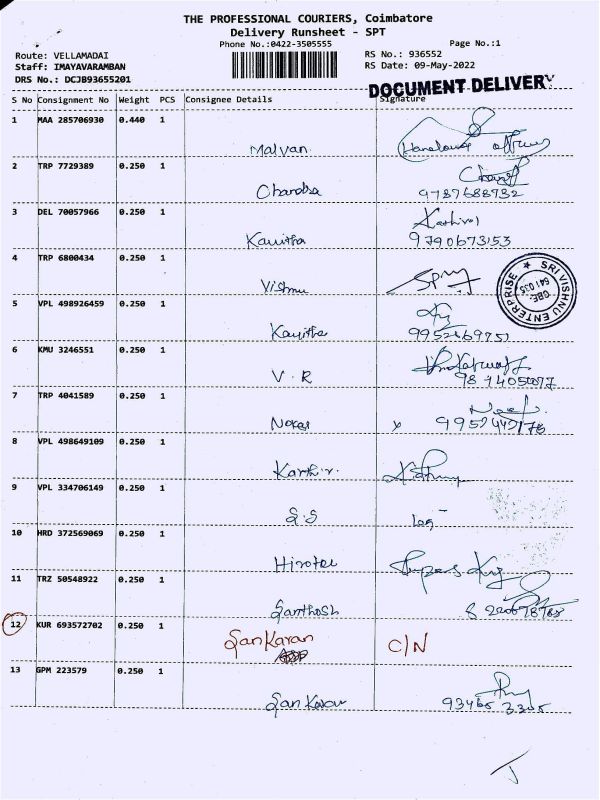 THE PROFESSIONAL COURIERS, Coimbatore
Delivery Runsheet - SPT
Phone No.:0422-3505555
Page No.:1
Route: VELLAMADAI
RS No.: 936552
Staff: IMAYAVARAMBAN
RS Date: 09-May-2022
DRS No.: DCJB93655201
DOCUMENT DELIVERY
S No Consignment No Weight PCS Consignee Details Signature
1 MAA 285706930 0.440 1
Malvan
2 TRP 7729389 0.250 1
Chandra 9787688732
3 DEL 70057966 0.250 1
Kavitha 9790673153
4 TRP 6800434 0.250 1
Vishnu
SRI VISHNU ENTERPRISE
CBE. 641 035
5 VPL 498926459 0.250 1
Kavitha
6 KMU 3246551 0.250 1
V. R
7 TRP 4041589 0.250 1
x
8 VPL 498649109 0.250 1
9 VPL 334706149 0.250 1
S.S
10 HRD 372569069 0.250 1
11 TRZ 50548922 0.250 1
Santhosh
12 KUR 693572702 0.250 1
Sankaran C/N
13 GPM 223579 0.250 1